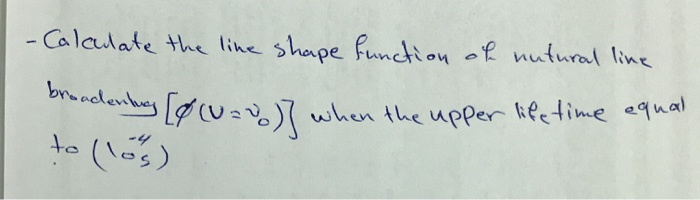 - Calculate the line shape function of nutural line
broadening [φ(ν=ν₀)] when the upper lifetime equal
to (10⁻⁴s)